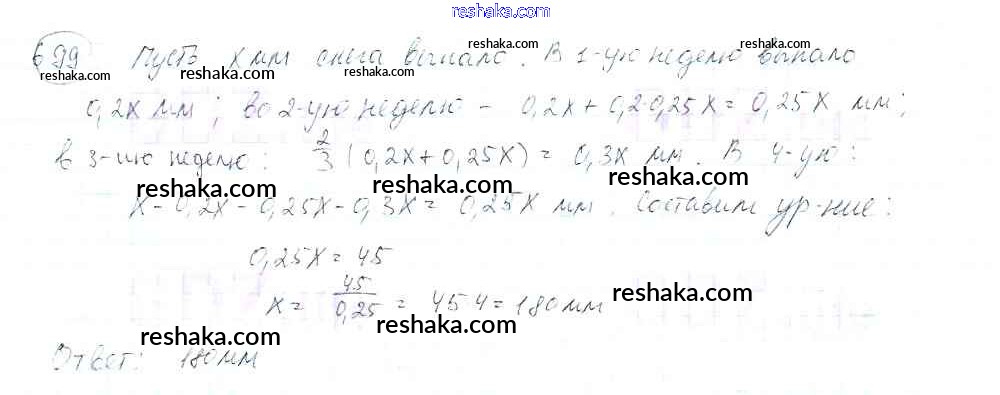 reshaka.com
699 Пусть x мм снега выпало. В 1-ую неделю выпало
reshaka.com reshaka.com
reshaka.com reshaka.com
0,2x мм; во 2-ую неделю - 0,2x + 0,2·0,25x = 0,25x мм;
reshaka.com reshaka.com
в 3-ию неделю: 2/3 (0,2x + 0,25x) = 0,3x мм. В 4-ую:
reshaka.com reshaka.com
x - 0,2x - 0,25x - 0,3x = 0,25x мм. Составим ур-ние:
0,25x = 45
x = 45/0,25 = 45·4 = 180 мм
reshaka.com reshaka.com
reshaka.com reshaka.com
Ответ: 180 мм